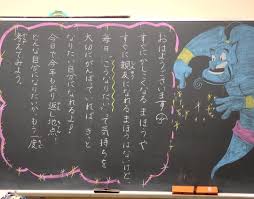 おはようございます!
すぐにかしこくなるまほうや
すぐに親友になれるまほうはないけど、
毎日、「こうなりたい」って気持ちを
大切にがんばっていれば きっと
なりたい自分になれるよ。
今日で今年もおり返し地点!
どんな自分になりたいか もう一度
考えてみよう。